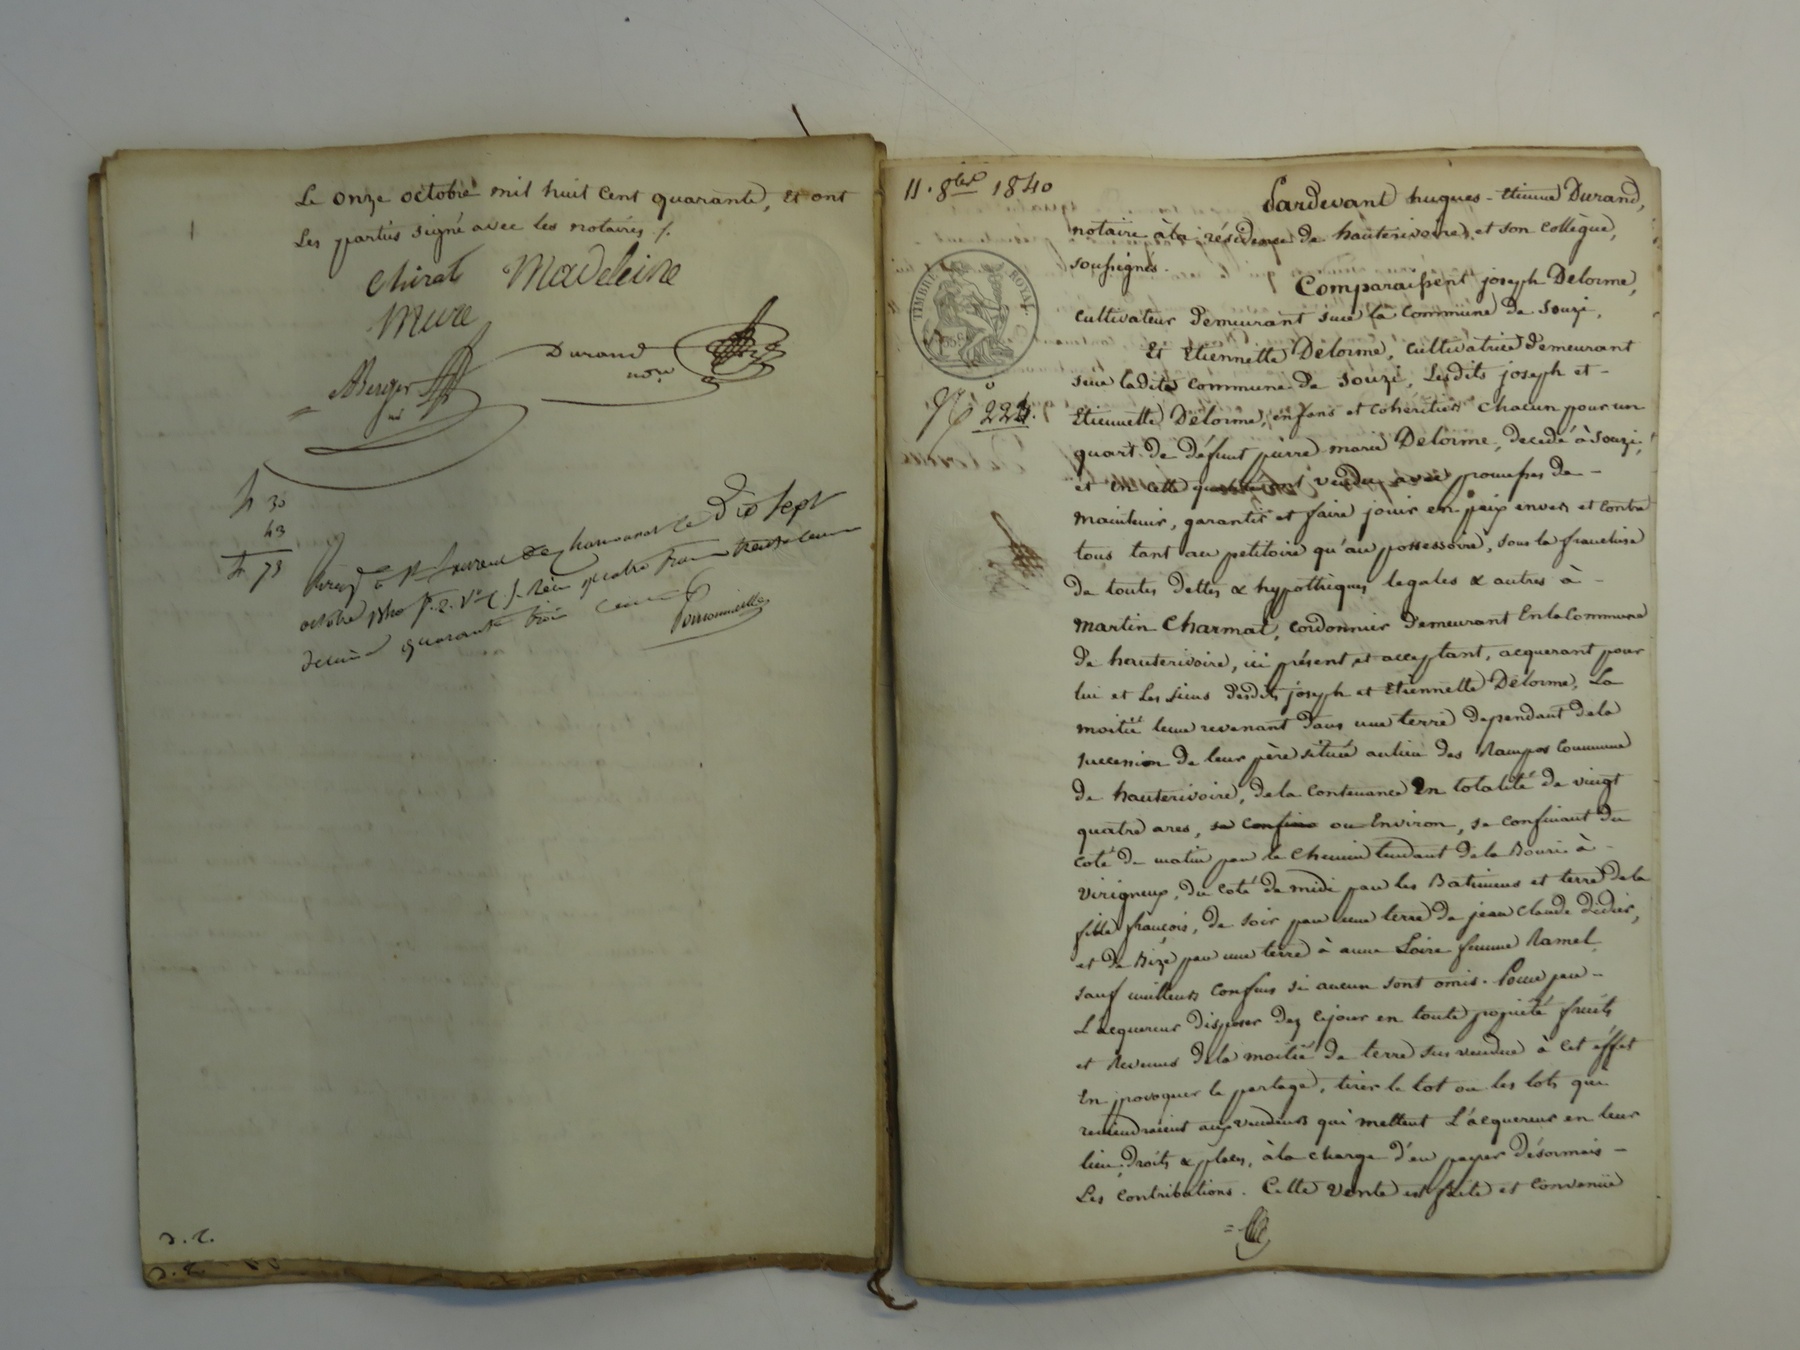 Le onze octobre mil huit cent quarante, et ont
Les parties signé avec les notaires ./.
Chirat Madeleine
Mure
Durand
nore
Berger
4 30
43
4 73
a St Laurent de Chamousset le Dix Sept
octobre 1840 quatre francs trente centimes
décime quarante trois centimes
11. 8bre 1840
Pardevant hugues-Etienne Durand,
notaire à la résidence de hauterivoire, et son collègue,
soussignés.
TIMBRE ROYAL
Comparaissent joseph Delorme,
cultivateur demeurant sur la commune de Souzi,
Et Etiennette Delorme, cultivatrice demeurant
sur ladite commune de Souzi, Lesdits joseph et -
No 224.
Etiennette Delorme, enfans et cohéritiers chacun pour un
quart de défunt pierre marie Delorme, decedé à Souzi,
et en cette qualité ont vendu avec promesses de -
maintenir, garantir et faire jouir en paix envers et contre
tous tant au petitoire qu'au possessoire, sous la franchise
de toutes dettes & hypothèques legales & autres à -
Martin Charmat, cordonnier demeurant En la Commune
de hauterivoire, ici présent et acceptant, acquerant pour
lui et Les siens desdits joseph et Etiennette Delorme, La
moitié leur revenant dans une terre dependant dela
succession de leur père située aulieu des Rampos Commune
de hauterivoire, dela Contenance En totalité de vingt
quatre ares, se confine ou Environ, se confinant du
coté de matin par le Chemin tendant dela Bourie à -
Virigneux, du coté de midi par les Batimens et terre dela
fille françois, de soir par une terre de jean claude didier,
et de Bize par une terre à anne Loire femme Ramel,
sauf meilleurs confins si aucun sont omis. Pour par -
L'acquereur disposer dez cejour en toute propriété fruits
et Revenus dela moitié de terre sus vendue à cet éffet
En provoquer le partage, tirer le lot ou les lots qui
reviendraient aux vendeurs qui mettent L'acquereur en leur
lieu, droits & place, àla charge d'en payer désormais -
Les contributions. Cette vente est faite et convenüe